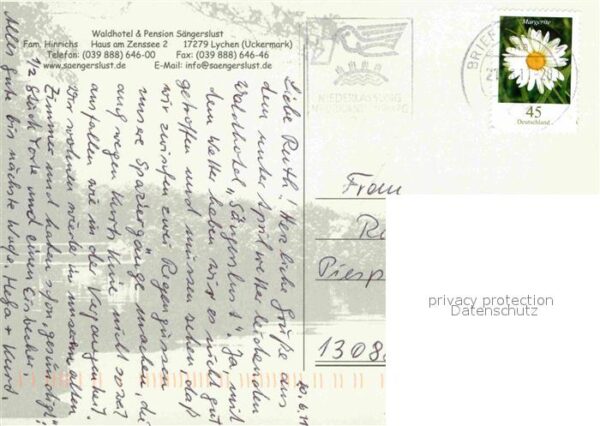 Waldhotel & Pension Sängerslust
Fam. Hinrichs Haus am Zenssee 2 17279 Lychen (Uckermark)
Telefon: (039 888) 646-00 Fax: (039 888) 646-46
www.saengerslust.de E-Mail: info@saengerslust.de
Liebe Ruth! Herzliche Grüße aus
dem unter Aprilwetter leidenden
Waldhotel „Sängerslust". Ja, mit
dem Wetter haben wir es nicht gut
getroffen und müssen sehen, daß
wir zwischen zwei Regengüssen
unsere Spaziergänge machen, die
auch wegen Kurts Knie nicht so
ausfallen wie in der Vergangenheit.
Wir wohnen wieder in unserem alten
Zimmer und haben schon „gesündigt":
1/2 Stück Torte und einen Eisbecher.
Alles Gute bis nächste Woche. Helga + Kurt.
NIEDERLASSUNG
BRIEF
Margerite
45
Deutschland
Frau
Piesp
1308
privacy protection
Datenschutz